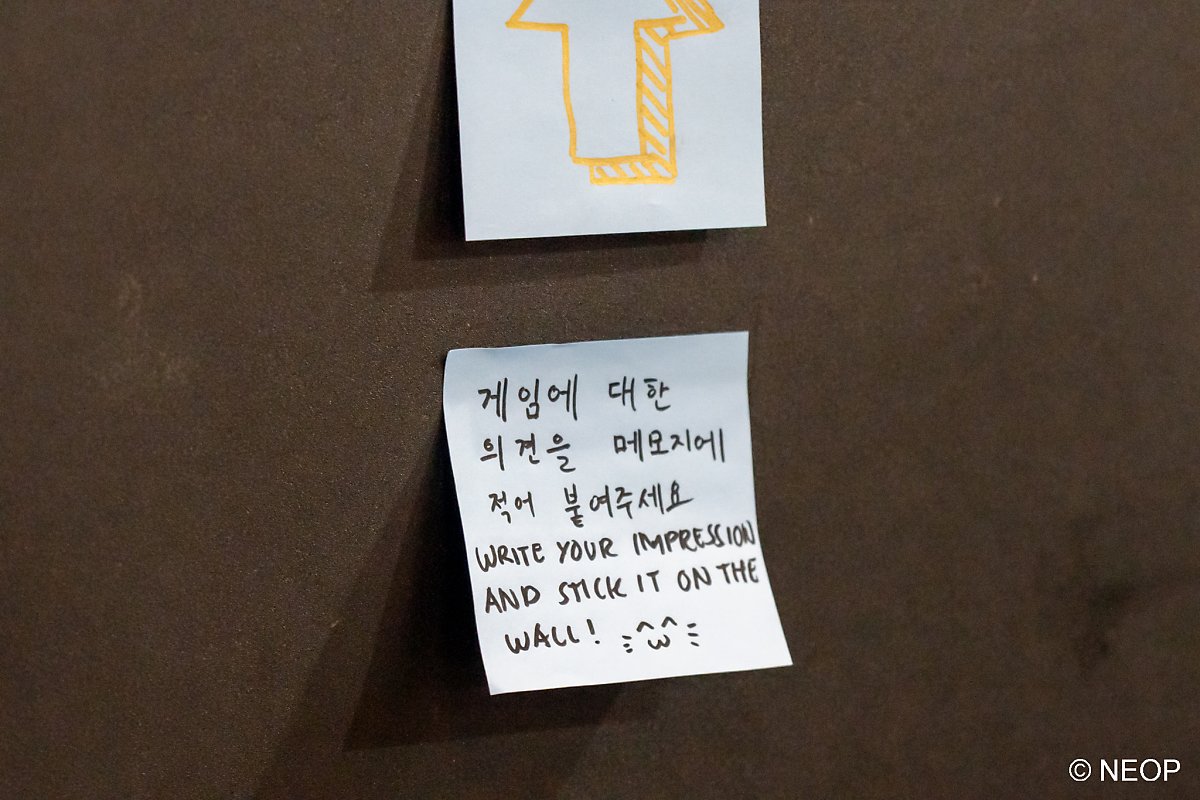 게임에 대한
의견을 메모지에
적어 붙여주세요
WRITE YOUR IMPRESSION
AND STICK IT ON THE
WALL!
© NEOP